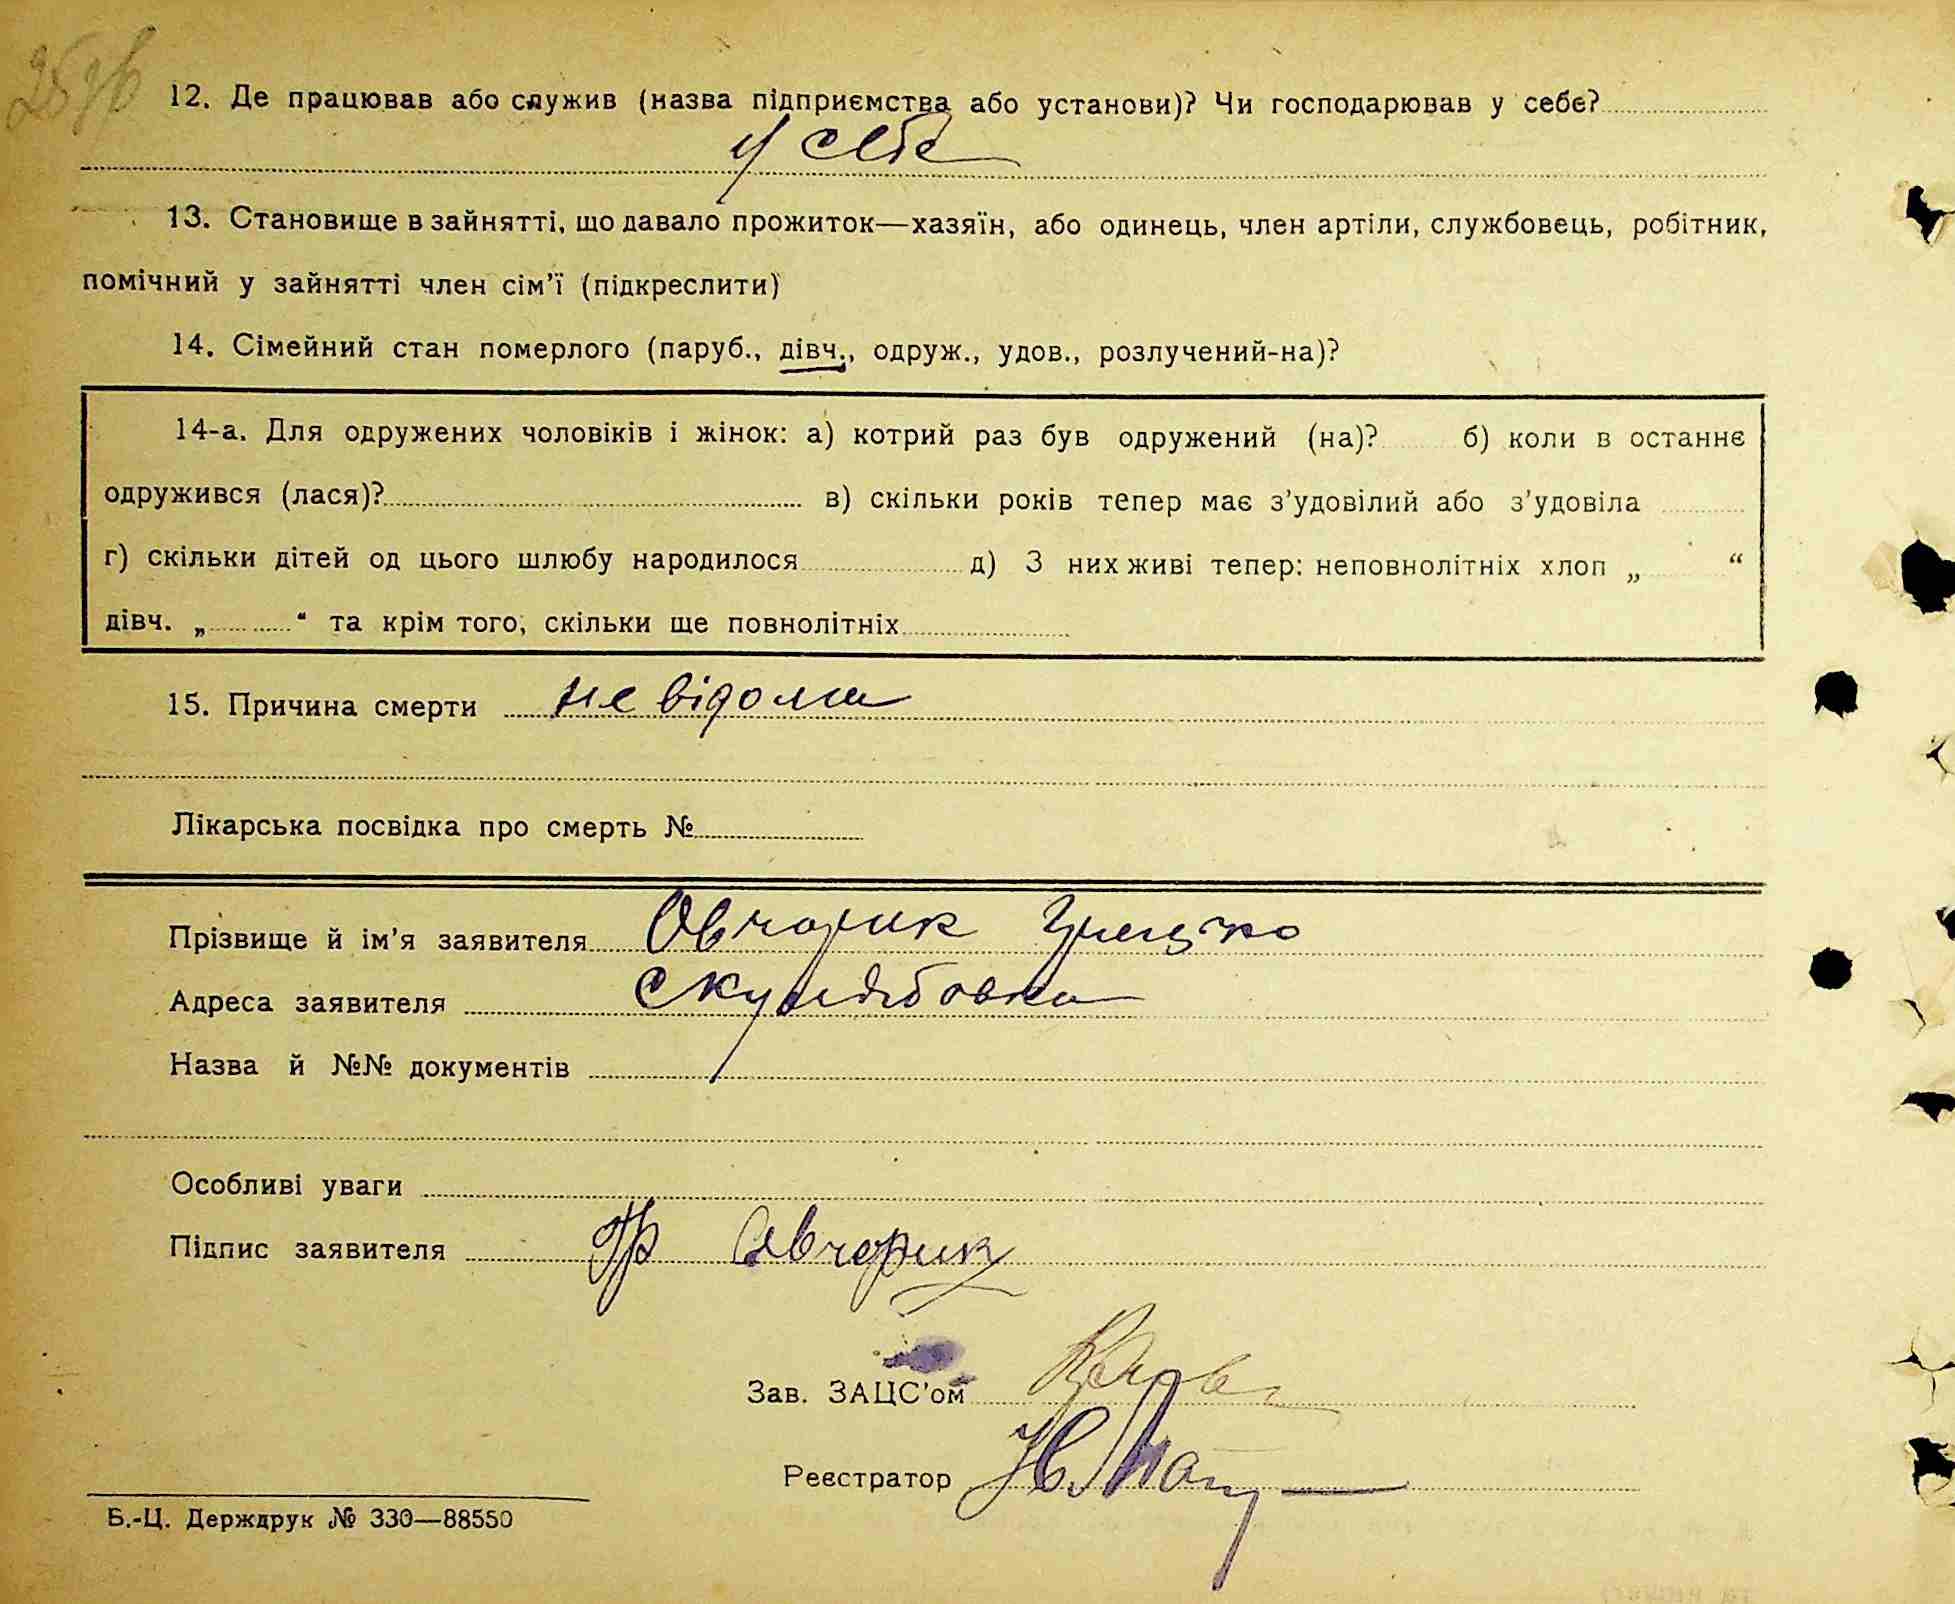 12. Де працював або служив (назва підприємства або установи)? Чи господарював у себе?
у себе
13. Становище в зайнятті, що давало прожиток—хазяїн, або одинець, член артіли, службовець, робітник,
помічний у зайнятті член сім'ї (підкреслити)
14. Сімейний стан померлого (паруб., дівч., одруж., удов., розлучений-на)?
14-а. Для одружених чоловіків і жінок: а) котрий раз був одружений (на)? б) коли в останнє
одружився (лася)? в) скільки років тепер має з'удовілий або з'удовіла
г) скільки дітей од цього шлюбу народилося д) З них живі тепер: неповнолітніх хлоп „ “
дівч. „ “ та крім того, скільки ще повнолітніх
15. Причина смерти не відома
Лікарська посвідка про смерть №
Прізвище й ім'я заявителя Овчарик Грицко
Адреса заявителя
Назва й №№ документів
Особливі уваги
Підпис заявителя Гр Овчарик
Зав. ЗАЦС'ом
Реєстратор
Б.-Ц. Держдрук № 330—88550